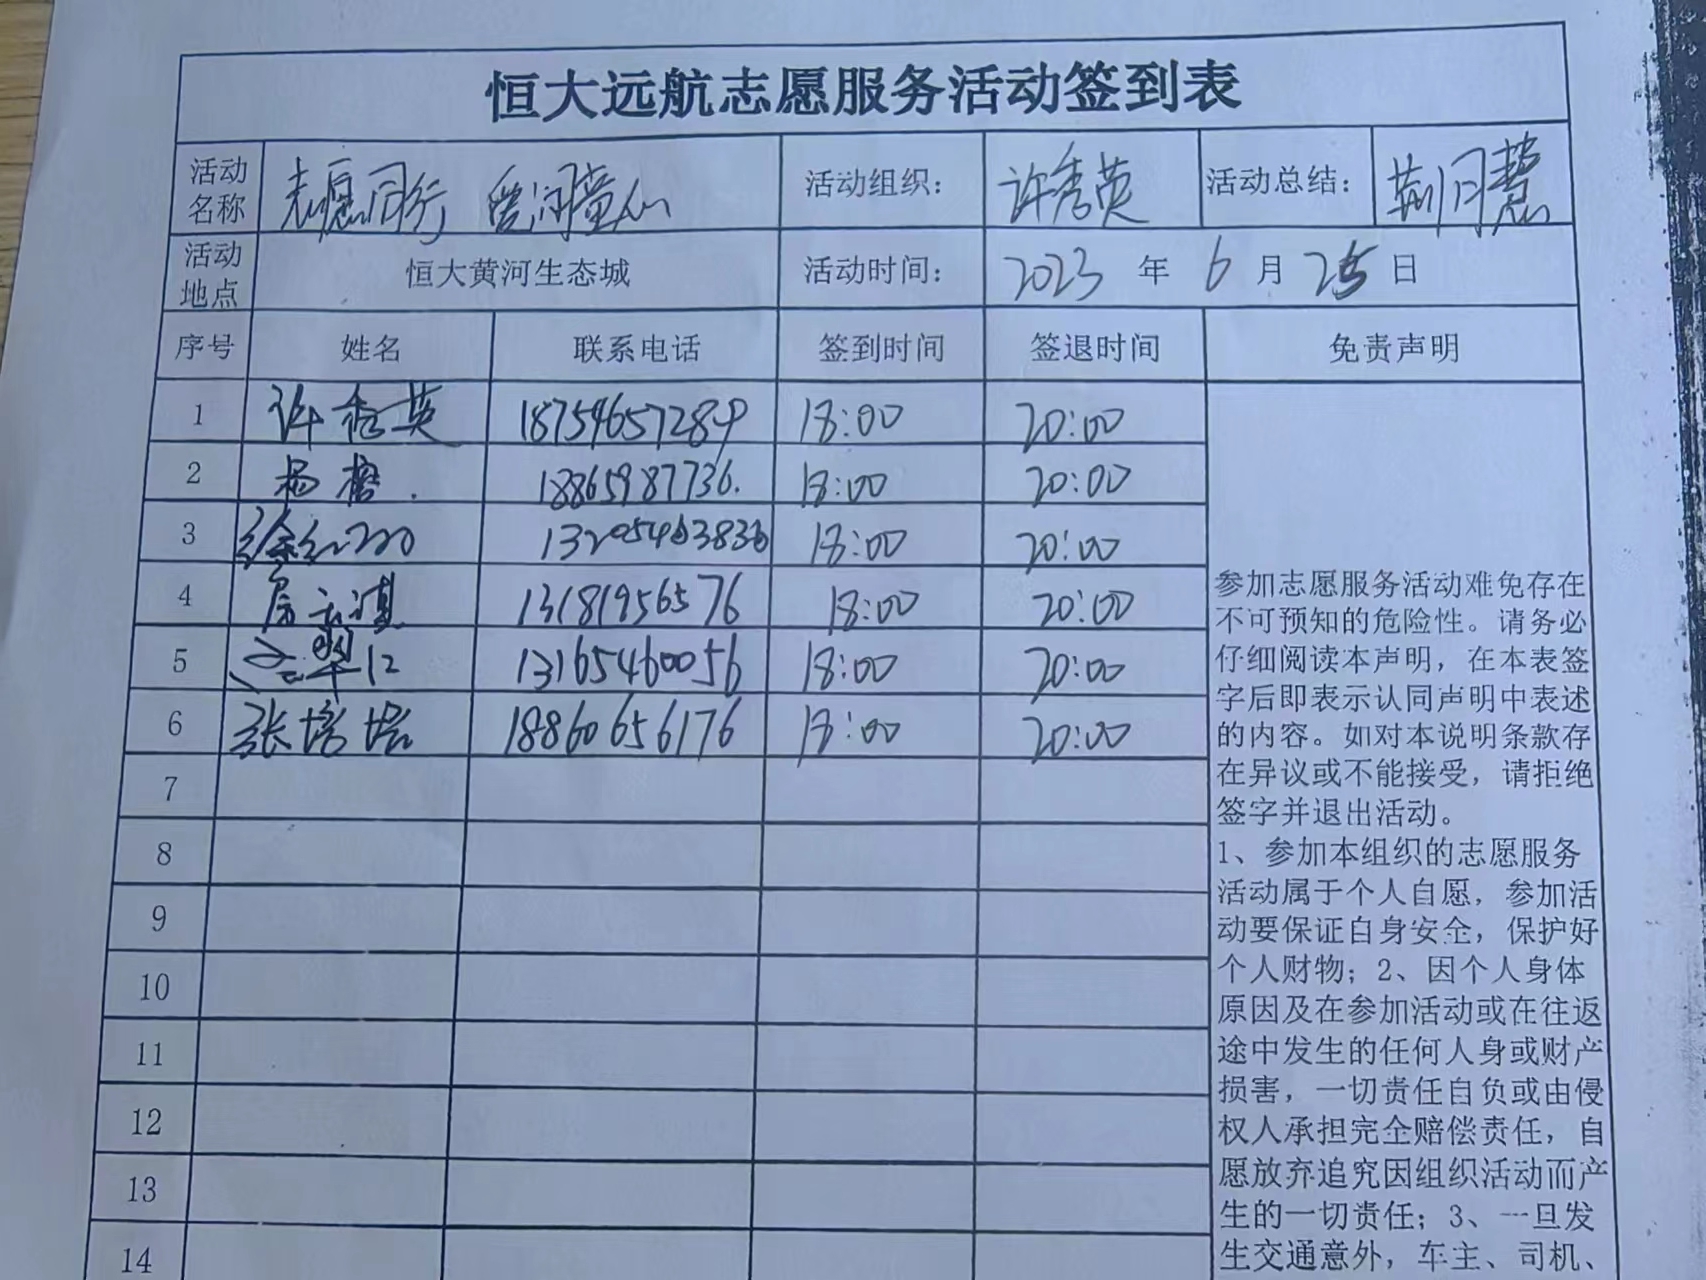 恒大远航志愿服务活动签到表
活动名称 志愿同行 爱润童心 活动组织： 许秀英 活动总结： 荆月慧
活动地点 恒大黄河生态城 活动时间： 2023 年 6 月 25 日
序号 姓名 联系电话 签到时间 签退时间 免责声明
1 许秀英 18754657289 18:00 20:00
2 杨榕 18865987736. 18:00 20:00
3 13205463836 18:00 20:00
4 房 13181956576 18:00 20:00
5 13165460056 18:00 20:00
6 张培培 18860656176 18:00 20:00
7
8
9
10
11
12
13
14
参加志愿服务活动难免存在
不可预知的危险性。请务必
仔细阅读本声明，在本表签
字后即表示认同声明中表述
的内容。如对本说明条款存
在异议或不能接受，请拒绝
签字并退出活动。
1、参加本组织的志愿服务
活动属于个人自愿，参加活
动要保证自身安全，保护好
个人财物；2、因个人身体
原因及在参加活动或在往返
途中发生的任何人身或财产
损害，一切责任自负或由侵
权人承担完全赔偿责任，自
愿放弃追究因组织活动而产
生的一切责任；3、一旦发
生交通意外，车主、司机、